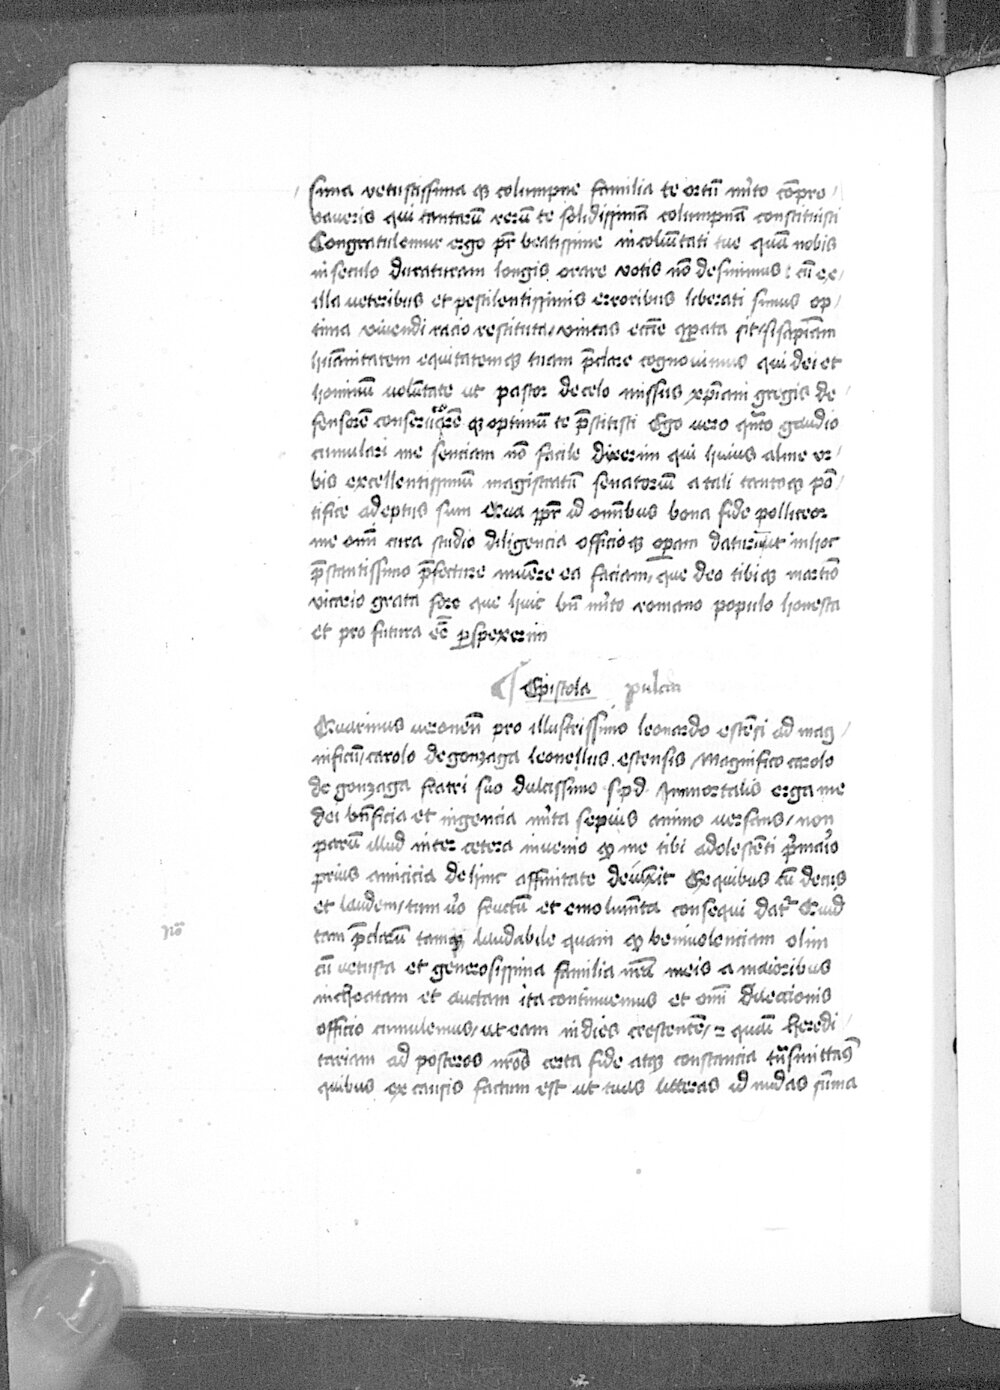 sima vetustissima qz columpne familia te ortū m̄ito cōpro
baveris qui tantarū rerū te solidissimā columpnā constituisti
Congratulemur ergo pr̄ beatissime incolūitati tue quā nobis
in seculo duraturam longis orare votis nō desinimus cū ex
illa veteribus et pestilentissimis erroribus liberati simus op
tima vivendi racio restituta / unitas eccīe parata sit / si sapiām
hūanitatem equitatemqz tuam p̄clare cognovimus qui dei et
hominū volūtate ut pastor de celo missus xp̄iani gregis de
fensorē qz optimū te p̄stitisti Ego vero qūto gaudio
cumulari me senciam nō facile dixerim qui huius alme or
bis excellentissimū magistratū senatoriū a tali tantoqz pō
tifice adeptus sum Qua ppr̄ id omībus bona fide polliceor
me omī cura studio diligencia officioqz operam daturū ut in hoc
p̄stantissimo p̄fecture munere ea faciam que deo tibiqz
vicario grata fore que huic bn̄ m̄ito romano populo honesta
et pro futura eē̄ perspexerim
Epistola pulcra
Guarinus veronen̄ pro illustrissimo leonardo estēsi ad mag
nificū carolo de gonzaga leonellus estensis Magnifico carolo
de gonzaga fratri suo dulcissimo s p d Immortalis erga me
dei bn̄ficia et ingencia m̄ita sepius animo versans / non
parū illud inter cetera invenio qz me tibi adolescēti
prius amicicia dehinc affinitate devīxit Ex quibus cū decus
et laudem / tum v̄o fructū et emolumēta consequi dat̄ Quid
tam p̄clarū tamqz laudabile quam qz benivolenciam olim
cū vetusta et generosissima familia meis a maioribus
inchoatam et auctam ita continuemus et omī dileccionis
officio cumulemus / ut eam in dies crescentē / quā heredi
tariam ad posteros nr̄os certa fide atqz constancia
quibus ex causis factum est ut tuas litteras ad sūma